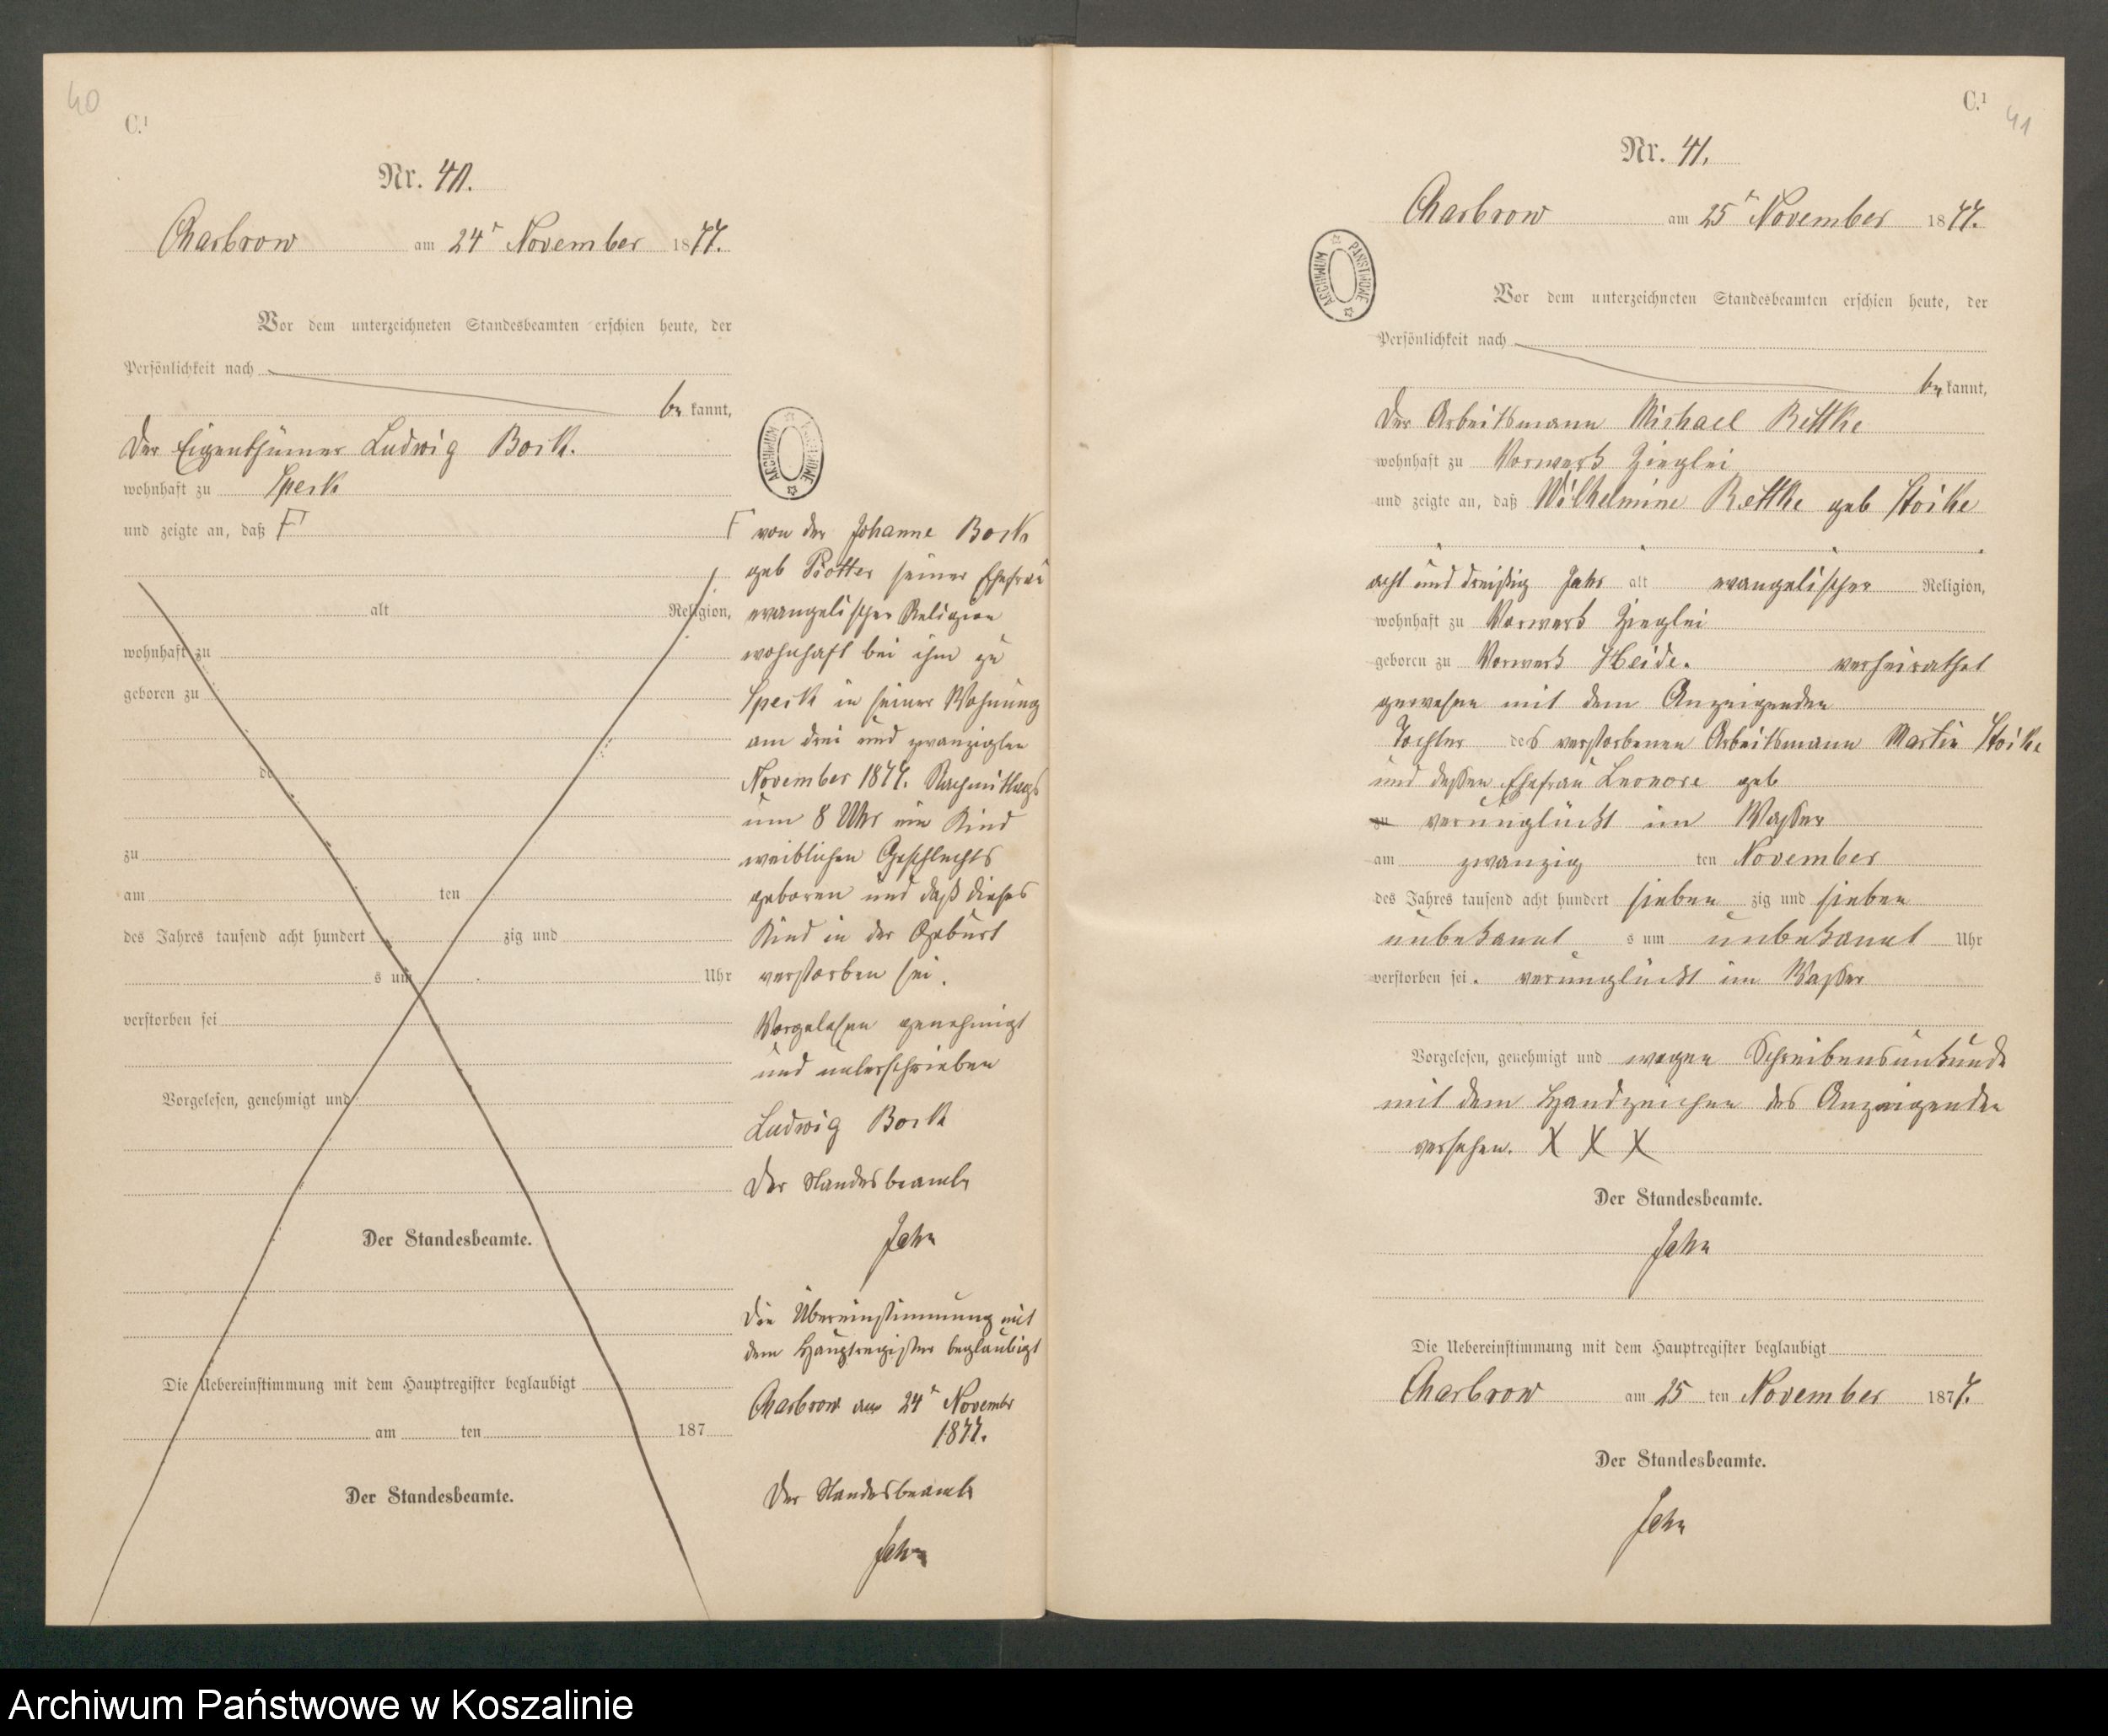 40
C.¹
Nr. 40.
Charbrow am 24ᵗ November 1877.
Vor dem unterzeichneten Standesbeamten erschien heute, der
Persönlichkeit nach
be kannt,
Der Eigenthümer Ludwig Bork.
wohnhaft zu Speck
und zeigte an, daß F
alt Religion,
wohnhaft zu
geboren zu
de
zu
am ten
des Jahres tausend acht hundert zig und
s um Uhr
verstorben sei
Vorgelesen, genehmigt und
Der Standesbeamte.
Die Uebereinstimmung mit dem Hauptregister beglaubigt
am ten 187
Der Standesbeamte.
ARCHIWUM PAŃSTWOWE
F von der Johanne Bork
geb seiner Ehefrau
evangelischer Religion
wohnhaft bei ihm zu
Speck in seiner Wohnung
am drei und zwanzigten
November 1877. Nachmittags
um 8 Uhr ein Kind
weiblichen Geschlechts
geboren und daß dieses
Kind in der Geburt
verstorben sei.
Vorgelesen genehmigt
und unterschrieben
Ludwig Bork
Der Standesbeamte
Jahn
Die Übereinstimmung mit
dem Hauptregister beglaubigt
Charbrow am 24ᵗ November
1877.
Der Standesbeamte
Jahn
C.¹
41
Nr. 41.
Charbrow am 25ᵗ November 1877.
ARCHIWUM PAŃSTWOWE
Vor dem unterzeichneten Standesbeamten erschien heute, der
Persönlichkeit nach
be kannt,
Der Arbeitsmann Michael Rettke
wohnhaft zu Vorwerk Zieglei
und zeigte an, daß Wilhelmine Rettke geb Stoike
acht und dreißig Jahr alt evangelischer Religion,
wohnhaft zu Vorwerk Zieglei
geboren zu Vorwerk Heide. verheirathet
gewesen mit dem Anzeigenden
Tochter des verstorbenen Arbeitsmann Martin Stoike
und dessen Ehefrau Leonore geb
zu verunglückt im Wasser
am zwanzig ten November
des Jahres tausend acht hundert sieben zig und sieben
unbekannt s um unbekannt Uhr
verstorben sei. verunglückt im Wasser
Vorgelesen, genehmigt und wegen Schreibensunkunde
mit dem Handzeichen des Anzeigenden
versehen. X X X
Der Standesbeamte.
Jahn
Die Uebereinstimmung mit dem Hauptregister beglaubigt
Charbrow am 25 ten November 1877.
Der Standesbeamte.
Jahn
Archiwum Państwowe w Koszalinie